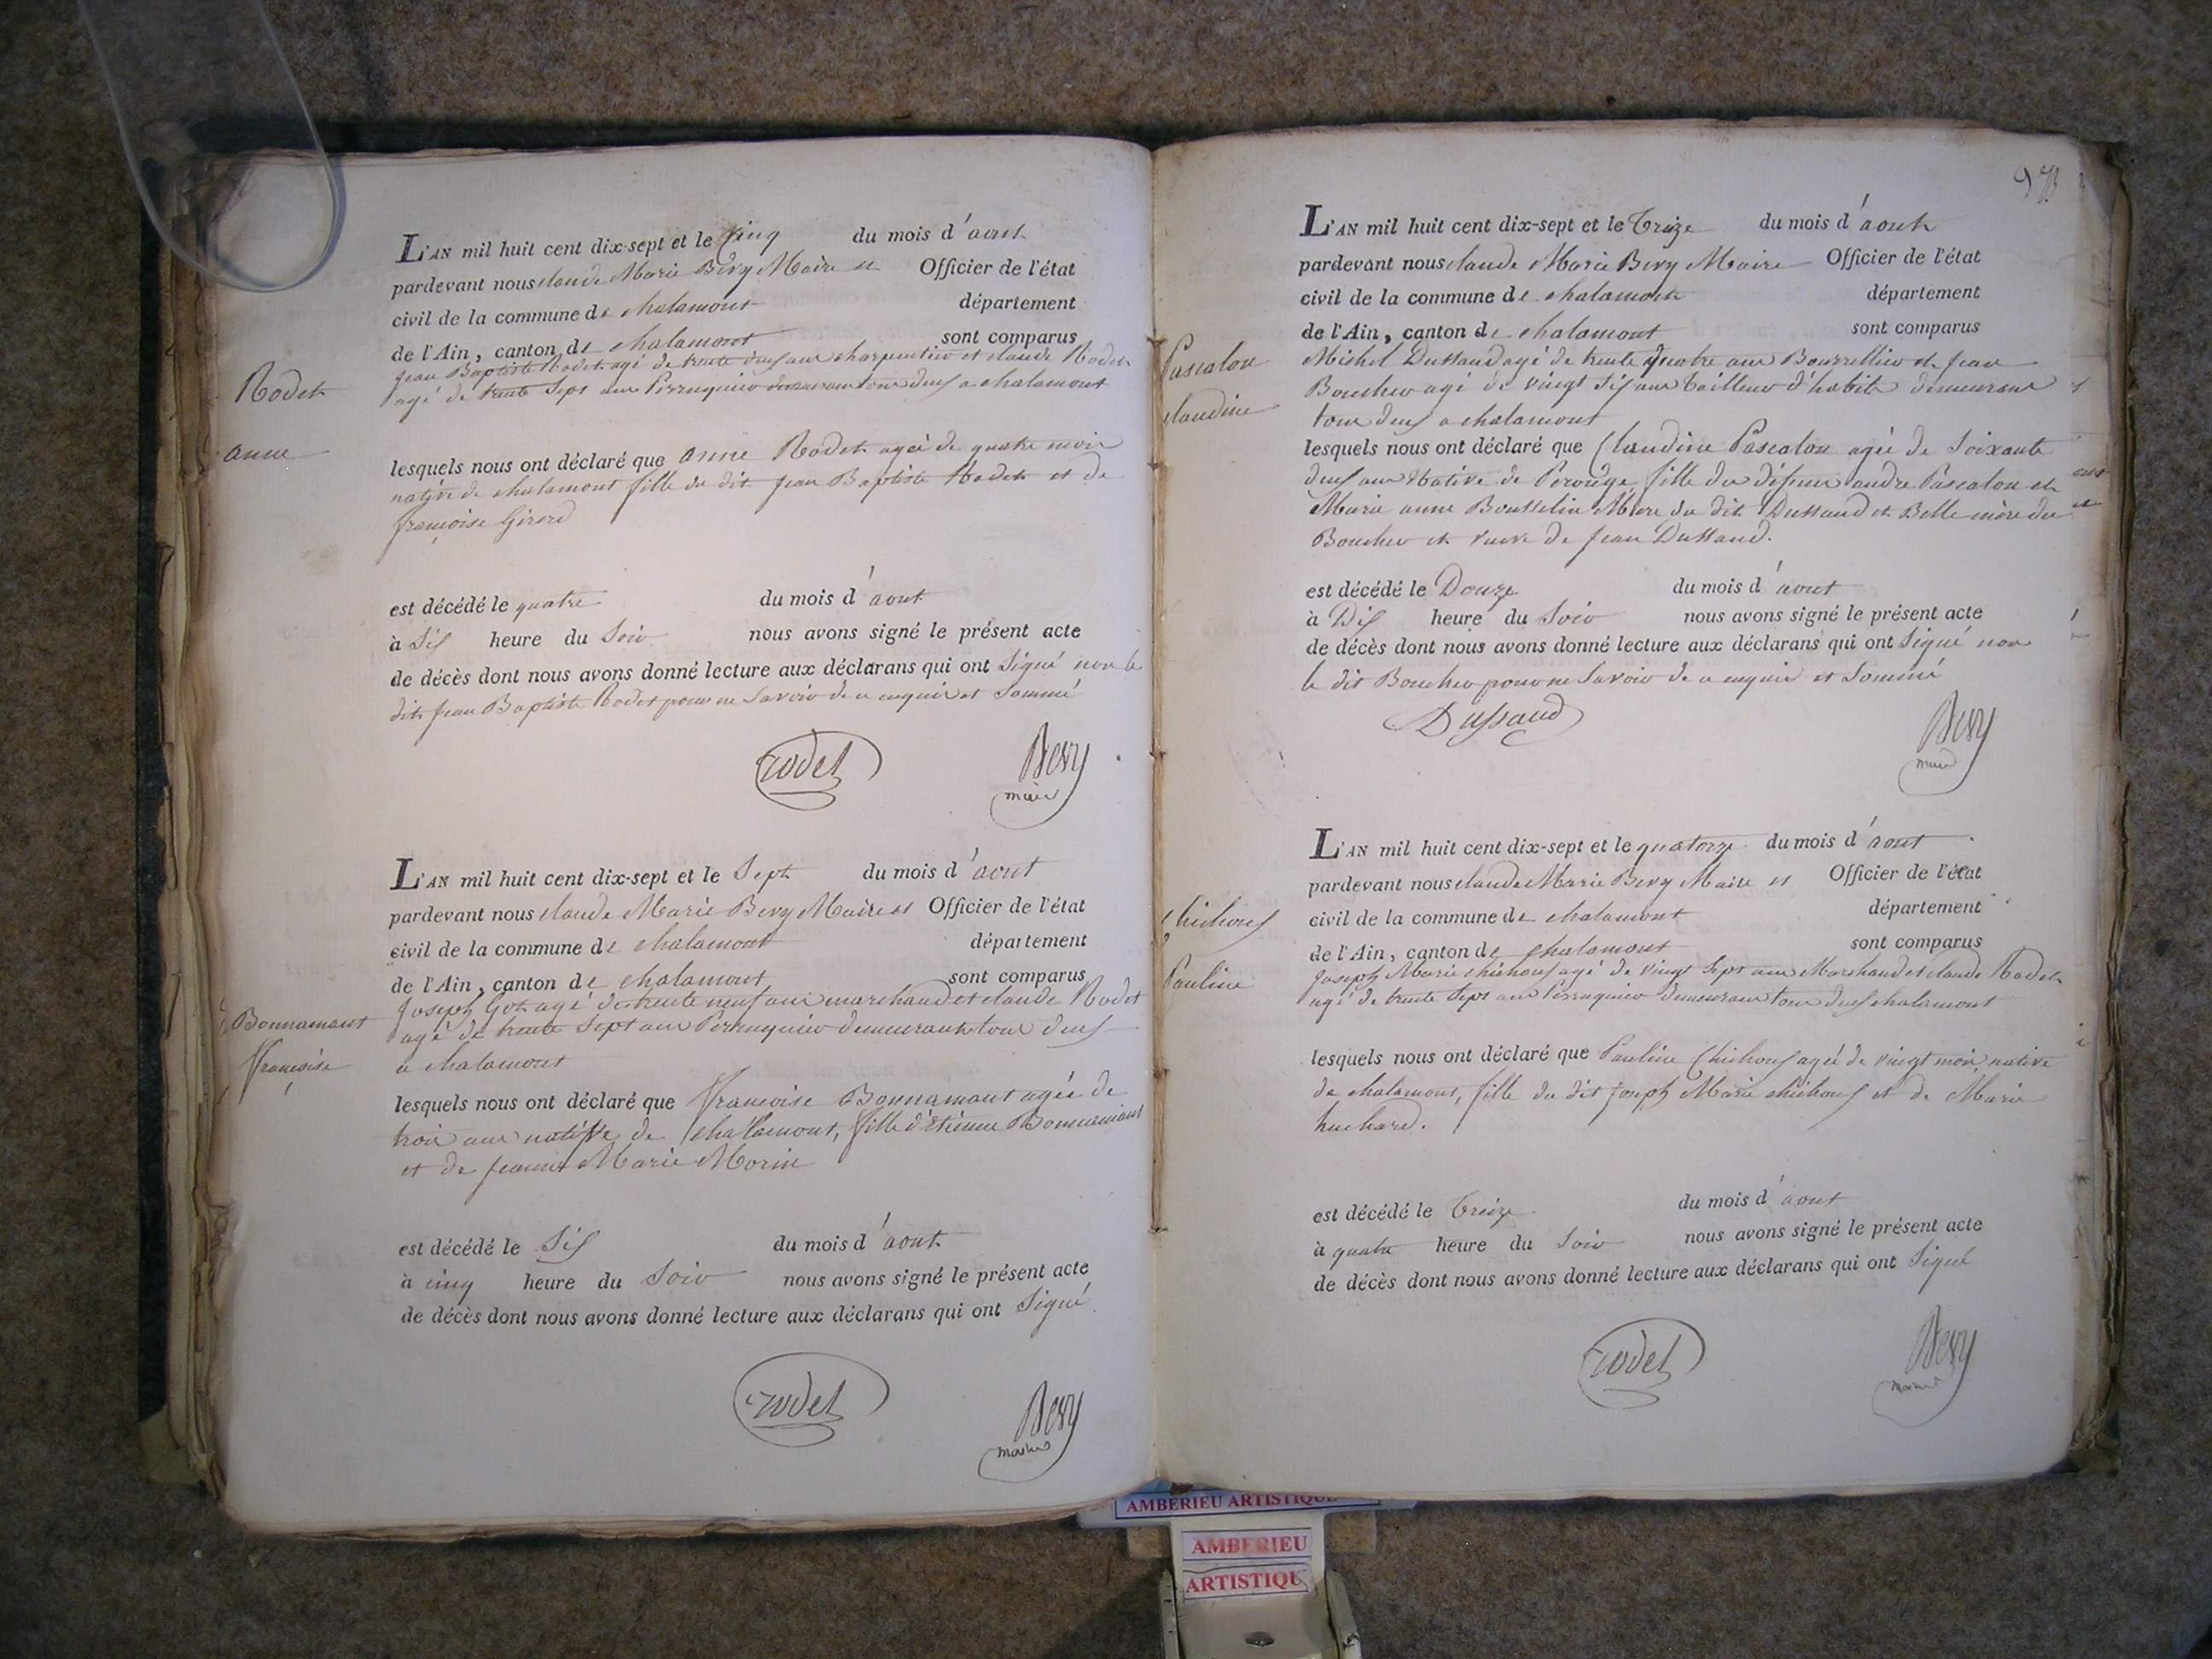 L'AN mil huit cent dix-sept et le Cinq du mois d'aout
pardevant nous claude Marie Bevy Maire et Officier de l'état
civil de la commune de chalamont département
de l'Ain, canton de chalamont sont comparus
jean Baptiste Rodet agé de trente deux ans charpentier et claude Rodet
agé de trente Sept ans Perruquier demeurant tous deux a chalamont
Rodet
anne
lesquels nous ont déclaré que anne Rodet agée de quatre mois
native de chalamont fille du dit jean Baptiste Rodet et de
françoise Girerd
est décédé le quatre du mois d'aout
à Six heure du Soir nous avons signé le présent acte
de décès dont nous avons donné lecture aux déclarans qui ont Signé non le
dit jean Baptiste Rodet pour ne Savoir de ce enquis et Sommé
rodet Bevy
maire
L'AN mil huit cent dix-sept et le Sept du mois d'aout
pardevant nous claude Marie Bevy Maire et Officier de l'état
civil de la commune de chalamont département
de l'Ain, canton de chalamont sont comparus
joseph Got agé de trente neuf ans marchand et claude Rodet
agé de trente Sept ans Perruquier demeurant tous deux
a chalamont
Bonnamant
françoise
lesquels nous ont déclaré que françoise Bonnamant agée de
trois ans native de chalamont, fille d'Etienne Bonnamant
et de jeanne Marie Morin
est décédé le Six du mois d'aout
à cinq heure du Soir nous avons signé le présent acte
de décès dont nous avons donné lecture aux déclarans qui ont Signé
rodet Bevy
maire
L'AN mil huit cent dix-sept et le Treize du mois d'aout
pardevant nous claude Marie Bevy Maire Officier de l'état
civil de la commune de chalamont département
de l'Ain, canton de chalamont sont comparus
Michel Dussaud agé de trente quatre ans Bourrellier et jean
Boucher agé de vingt Six ans Tailleur d'habits demeurant
tous deux a chalamont
Pascalon
claudine
lesquels nous ont déclaré que Claudine Pascalon agée de Soixante
deux ans Native de Perouge fille du défunt andré Pascalon et
Marie anne Bousselin Mere du dit Dussaud et Belle mère du
Boucher et veuve de jean Dussaud.
est décédé le Douze du mois d'aout
à Dix heure du Soir nous avons signé le présent acte
de décès dont nous avons donné lecture aux déclarans qui ont Signé non
le dit Boucher pour ne Savoir de ce enquis et Sommé
Dussaud Bevy
maire
L'AN mil huit cent dix-sept et le quatorze du mois d'aout
pardevant nous claude Marie Bevy Maire et Officier de l'état
civil de la commune de chalamont département
de l'Ain, canton de chalamont sont comparus
joseph Marie chichoux agé de vingt Sept ans Marchand et claude Rodet
agé de trente Sept ans Perruquier demeurant tous deux chalamont
chichoux
Pauline
lesquels nous ont déclaré que Pauline Chichoux agée de vingt mois, native
de chalamont, fille du dit joseph Marie chichoux et de Marie
huchard.
est décédé le Treize du mois d'aout
à quatre heure du Soir nous avons signé le présent acte
de décès dont nous avons donné lecture aux déclarans qui ont Signé
rodet Bevy
maire
AMBERIEU ARTISTIQUE
AMBERIEU
ARTISTIQU